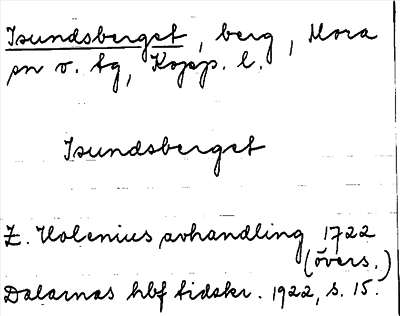 Isundsberget, berg, Mora
sn o. tg, Kopp. l.
Isundsberget
Z. Holenius avhandling 1722
(övers.)
Dalarnas hbf tidskr. 1922, s. 15.